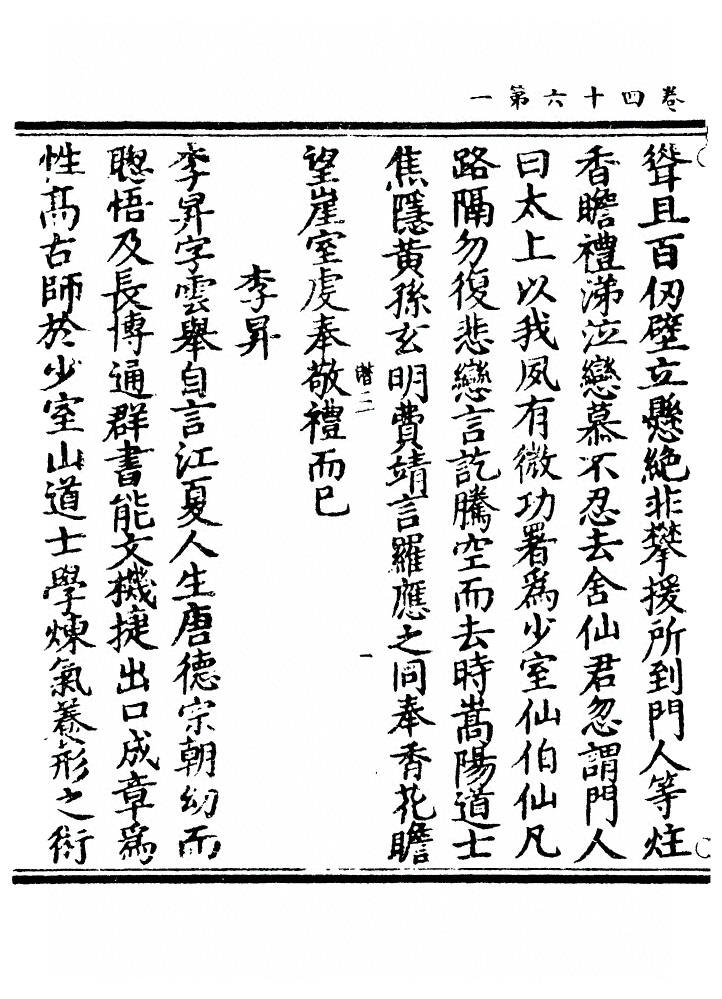 卷四十六第一
聳且百仞壁立懸絶非攀援所到門人等炷
香瞻禮涕泣戀慕不忍去舍仙君忽謂門人
曰太上以我夙有微功署爲少室仙伯仙凡
路隔勿復悲戀言訖騰空而去時嵩陽道士
焦隱黃孫玄明費靖言羅應之同奉香花瞻
望崖室虔奉敬禮而已
李昇
李昇字雲舉自言江夏人生唐德宗朝幼而
聰悟及長博通群書能文機捷出口成章爲
性髙古師於少室山道士學煉氣養形之術